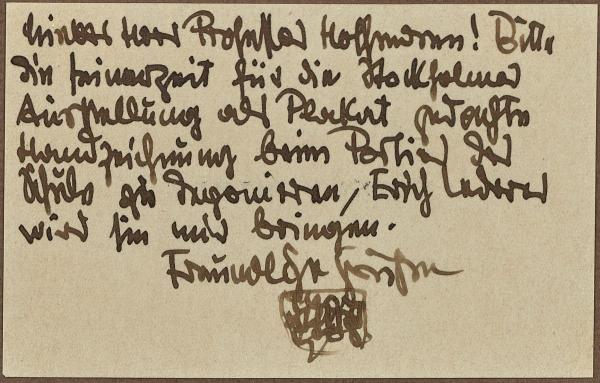 Lieber Herr Professor Hoffmann! Bitte
die seinerzeit für die Stockholmer
Ausstellung als Plakat gedachte
Handzeichnung beim Portier der
Schule zu deponieren, Erich Lederer
wird sie mir bringen.
Freundliche Grüße